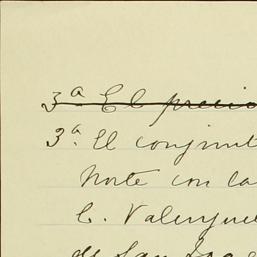 3ª El precio
3ª. El conjunt
Norte con la
C. Valenzuel
de San Jose